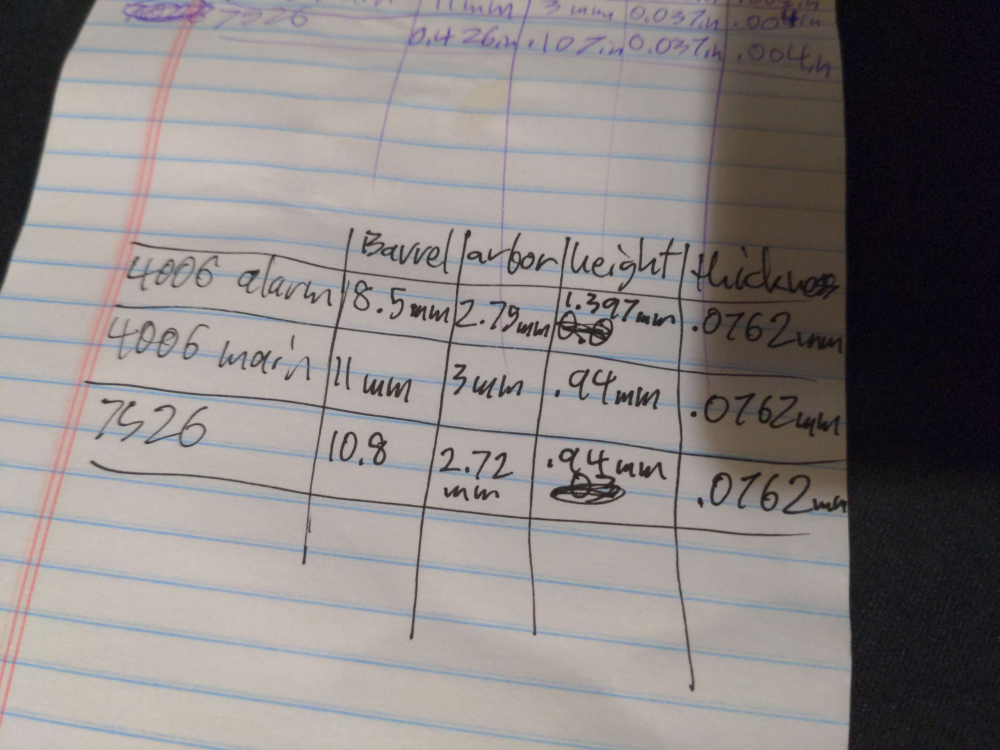 11mm 3mm 0.037in .004in
7S26
0.426in .107in 0.037in .004in
Barrel arbor height thickness
4006 alarm 8.5mm 2.79mm 1.397mm .0762mm
4006 main 11mm 3mm .94mm .0762mm
7S26 10.8 2.72 mm .94mm .0762mm